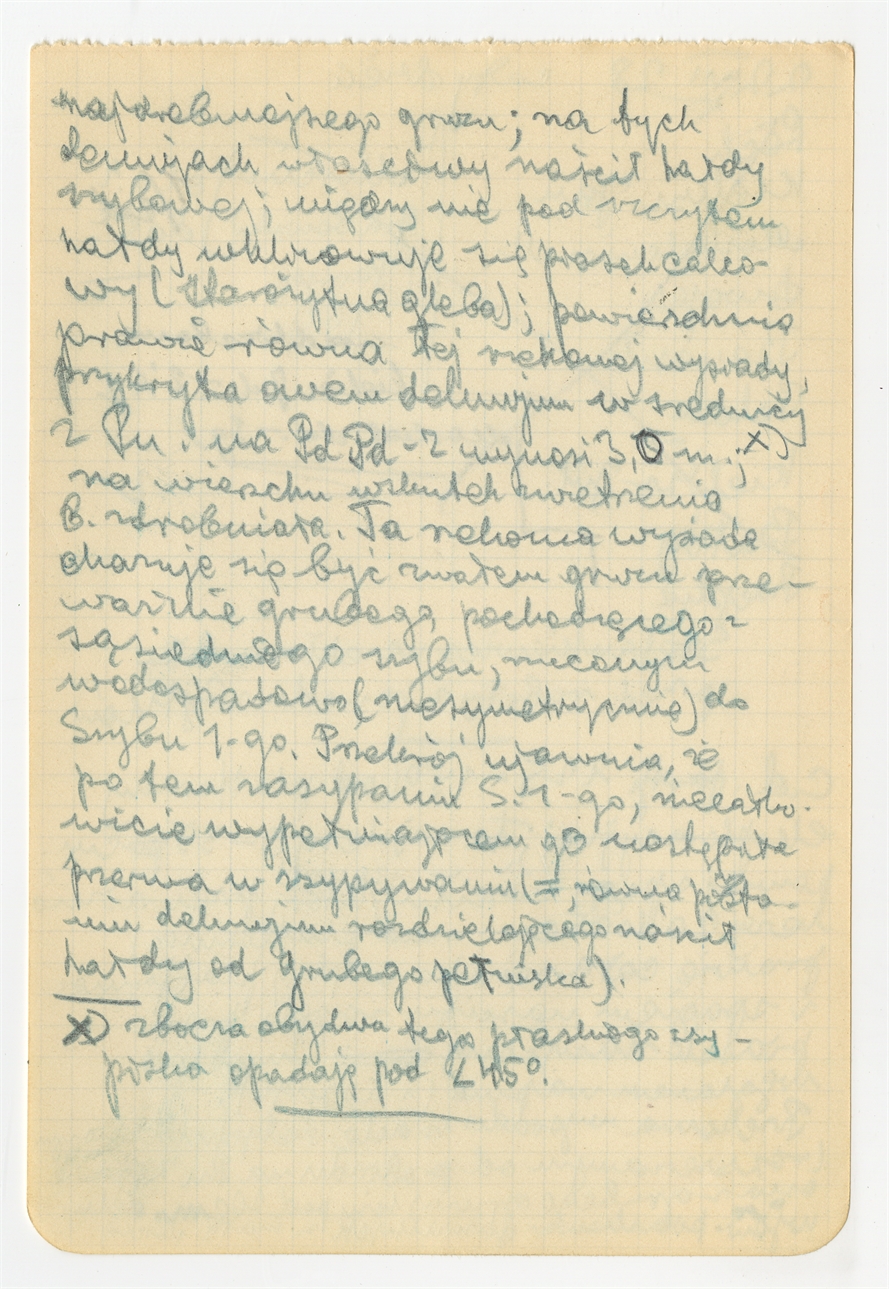 najdrobniejszego gruzu; na tych
deluwjach właściwy nasćit hałdy
szybowej; między nie pod szczytem
hałdy wklinowuje się piasek calco-
wy (starożytna gleba); powierzchnia
prawie równa tej rzekomej wysiady,
przykryta owem deluwjum w średnicy
z Pn. na Pd Pd-Z wynosi 3,0 m.; x)
na wierzchu wskutek zwietrzenia
b. zdrobniała. Ta rzekoma wysiada
okazuje się być zwałem gruzu prze-
ważnie grubego, pochodzącego z
sąsiedniego szybu, rzuconym
wodospadowo (niesymetrycznie) do
Szybu 1-go. Przekrój ujawnia, że
po tem zasypaniu S. 1-go, niecałko-
wicie wypełniającem go nastąpiła
przerwa w zsypywaniu (=, równa
deluwjum rozdzielającego nasćit
hałdy od grubego petniska).
x) zbocza obydwa tego płaskiego zsy-
piska opadają pod ∠45°.